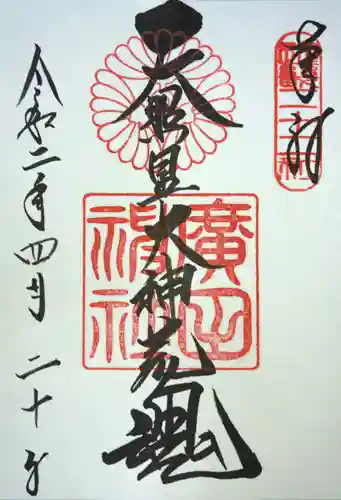 奉拝
天照皇大神荒魂
廣田
神社
令和二年四月二十日